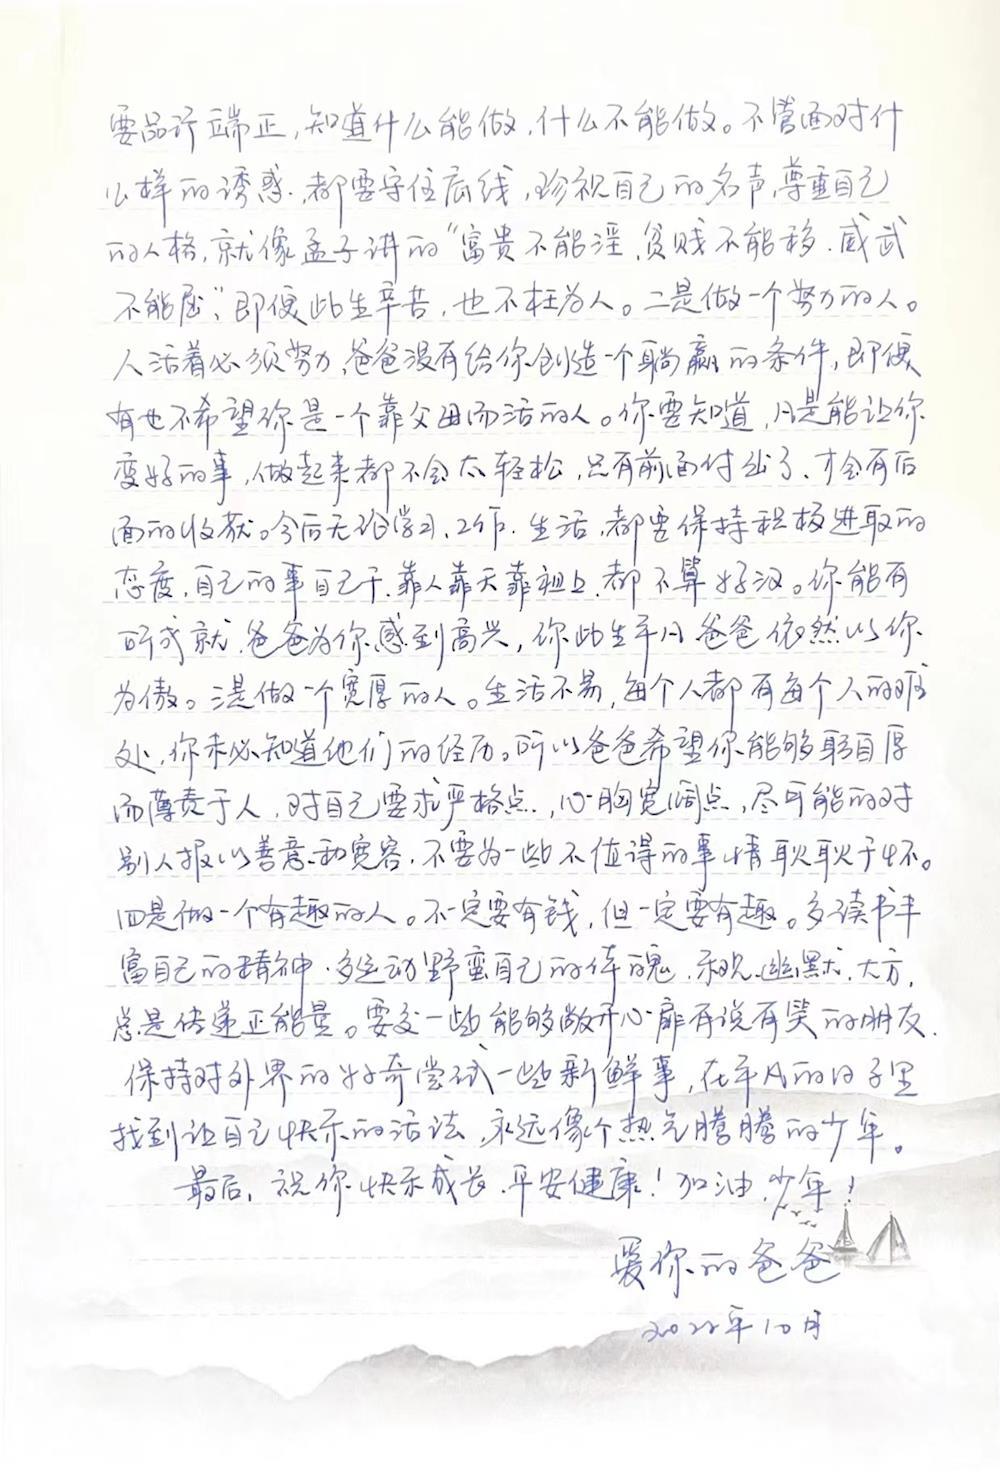 要品行端正，知道什么能做，什么不能做。不管面对什
么样的诱惑，都要守住底线，珍视自己的名声，尊重自己
的人格，就像孟子讲的“富贵不能淫，贫贱不能移，威武
不能屈”，即便此生辛苦，也不枉为人。二是做一个努力的人。
人活着必须努力，爸爸没有给你创造一个躺赢的条件，即便
有也不希望你是一个靠父母而活的人。你要知道，凡是能让你
变好的事，做起来都不会太轻松，只有前面付出了，才会有后
面的收获。今后无论学习、工作、生活，都要保持积极进取的
态度，自己的事自己干，靠人靠天靠祖上，都不算好汉。你能有
所成就，爸爸为你感到高兴，你此生平凡爸爸依然以你
为傲。三是做一个宽厚的人。生活不易，每个人都有每个人的难
处，你未必知道他们的经历。所以爸爸希望你能够躬自厚
而薄责于人，对自己要求严格点，心胸宽阔点，尽可能的对
别人报以善意和宽容，不要为一些不值得的事情耿耿于怀。
四是做一个有趣的人。不一定要有钱，但一定要有趣。多读书丰
富自己的精神，多运动野蛮自己的体魄，乐观、幽默、大方，
总是传递正能量。要交一些能够敞开心扉有说有笑的朋友，
保持对外界的好奇尝试一些新鲜事，在平凡的日子里
找到让自己快乐的活法，永远像个热气腾腾的少年。
最后，祝你快乐成长，平安健康！加油，少年！
爱你的爸爸
2022年10月